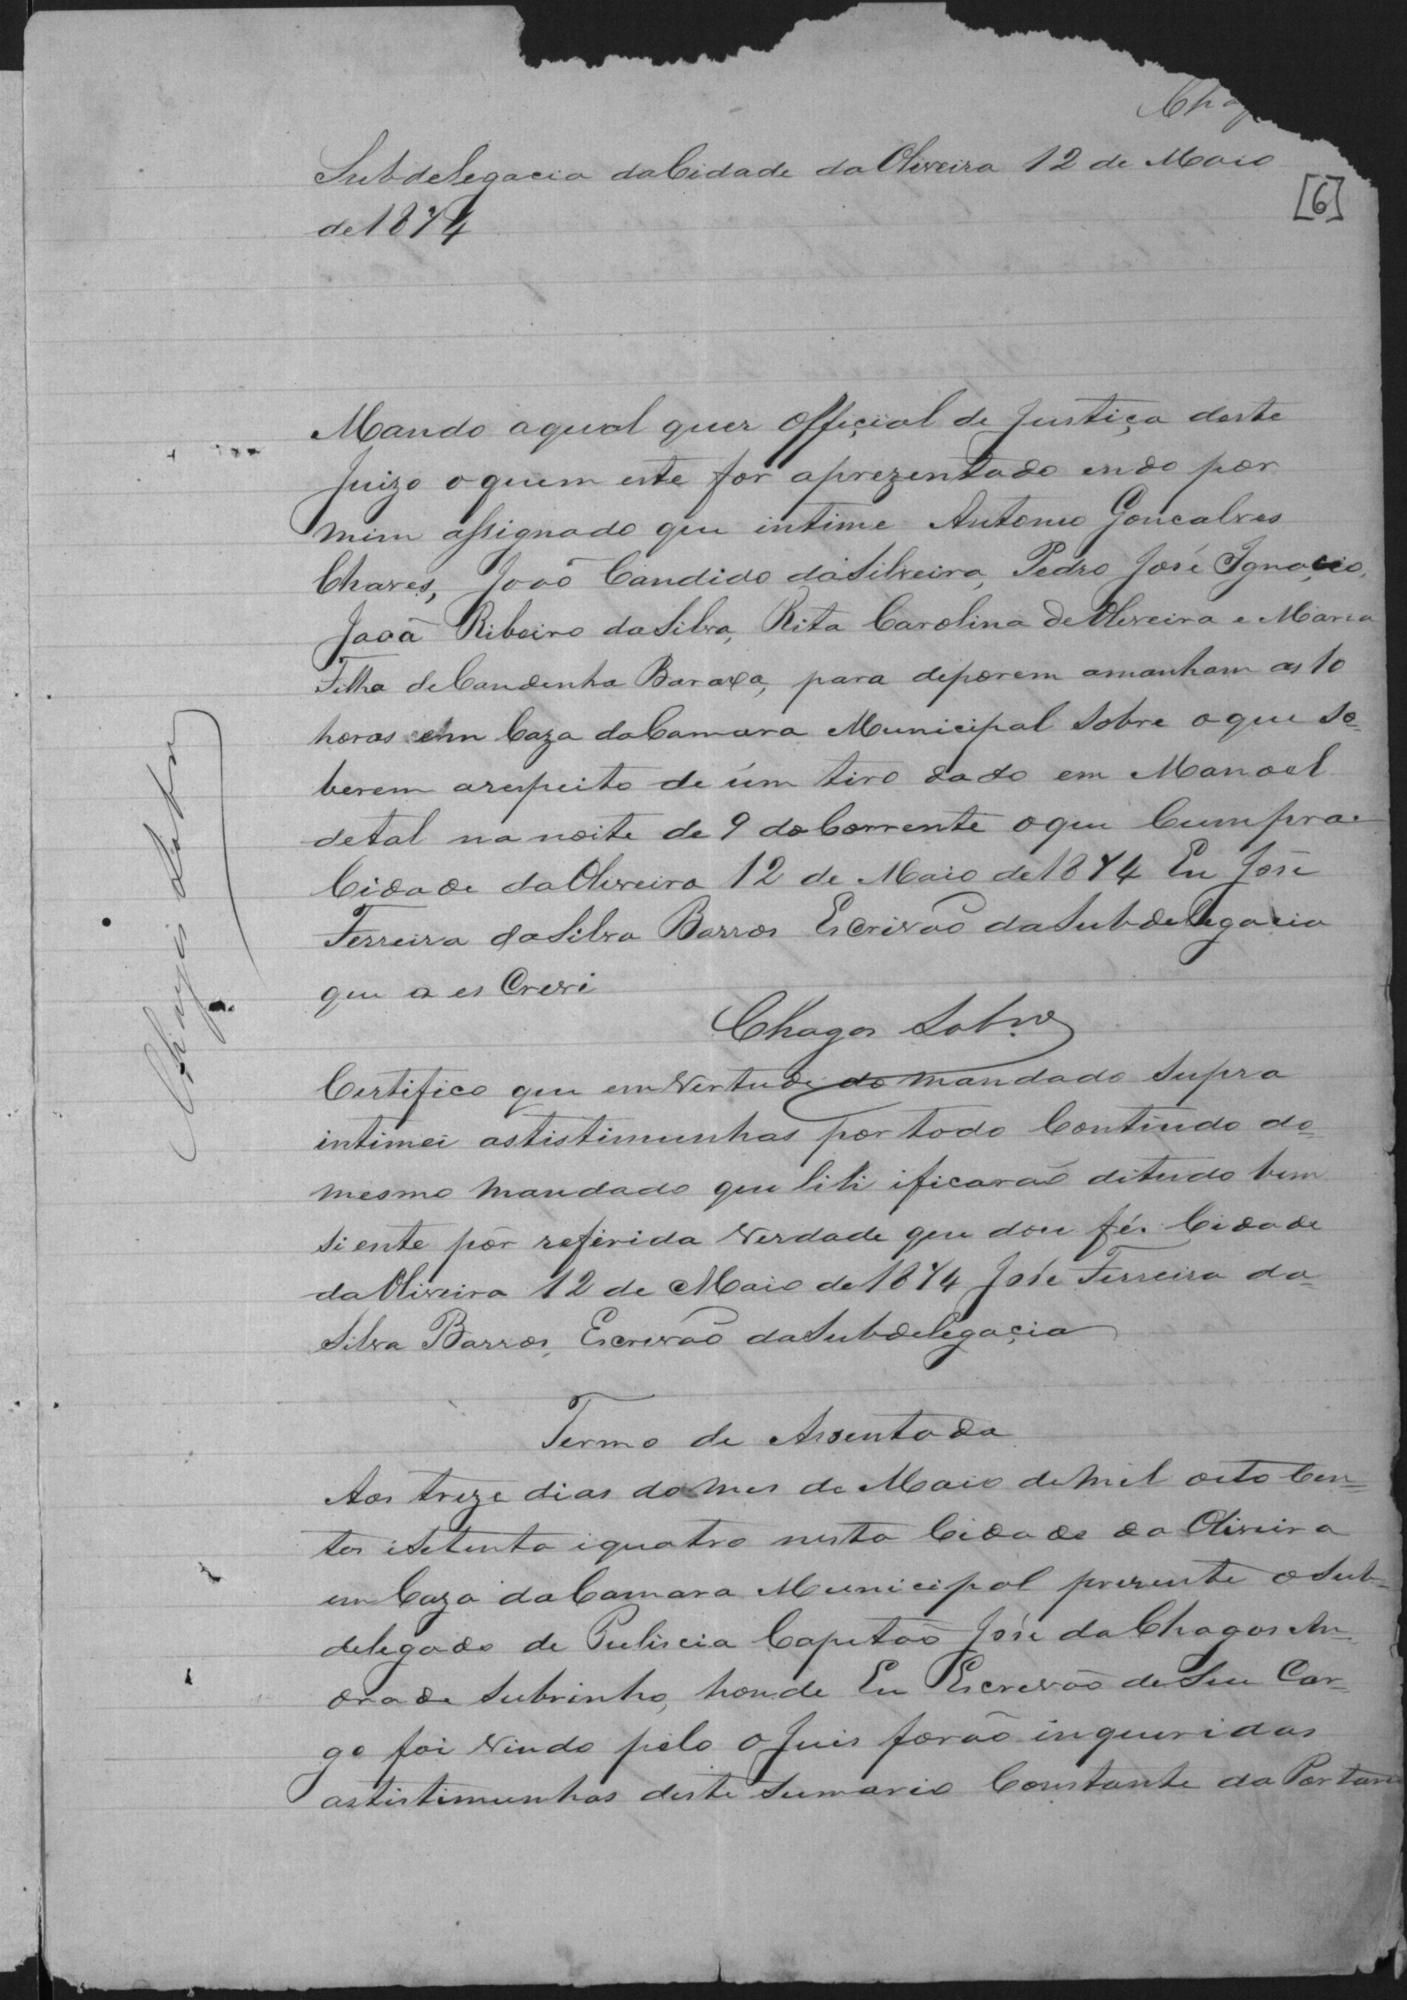 Chag
[6]
Subdelegacia da Cidade da Oliveira 12 de Maio
de 1874
Mando a qual quer Offiçial de Justiça deste
Juizo o quem este for aprezentado endo por
mim assignado que intime Antonio Goncalves
Chaves, João Candido da Silveira, Pedro José Ignaçio,
Jooã Ribeiro da Silva, Rita Carolina de Oliveira e Maria
Filha de Candenha Baraxa, para deporem amanham as 10
horas em Caza da Camara Municipal Sobre o que So=
berem arespeito de úm tiro dado em Manoel
de tal na noite de 9 do Corrente o que Cumpra
Cidade da Oliveira 12 de Maio de 1874 Eu José
Ferreira da Silva Barros Escrivão da Subdelegacia
que a es Crevi
Chagas Sobr.º
Certifico que em Vertude do mandado Supra
intimei as tistimunhas por todo Contiudo do=
mesmo mandado que lili ificarão ditudo bem
siente por referida Verdade que dou fé. Cidade
da Oliveira 12 de Maio de 1874 José Ferreira da=
Silva Barros, Escrivão da Subdelegaçia
Termo de Assentada
Aos treze dias do mes de Maio de mil oito Cen=
tos isetenta iquatro nesta Cidade da Oliveira
em Caza da Camara Municipal prezente o Sub=
delegado de Puliscia Capitão José da Chagas An=
drade Subrinho, honde Eu Escrivão de Seu Car=
go foi Vindo pelo o Juis forão inqueridas
as tistimunhas deste Sumario Constante da Portari
Chagas